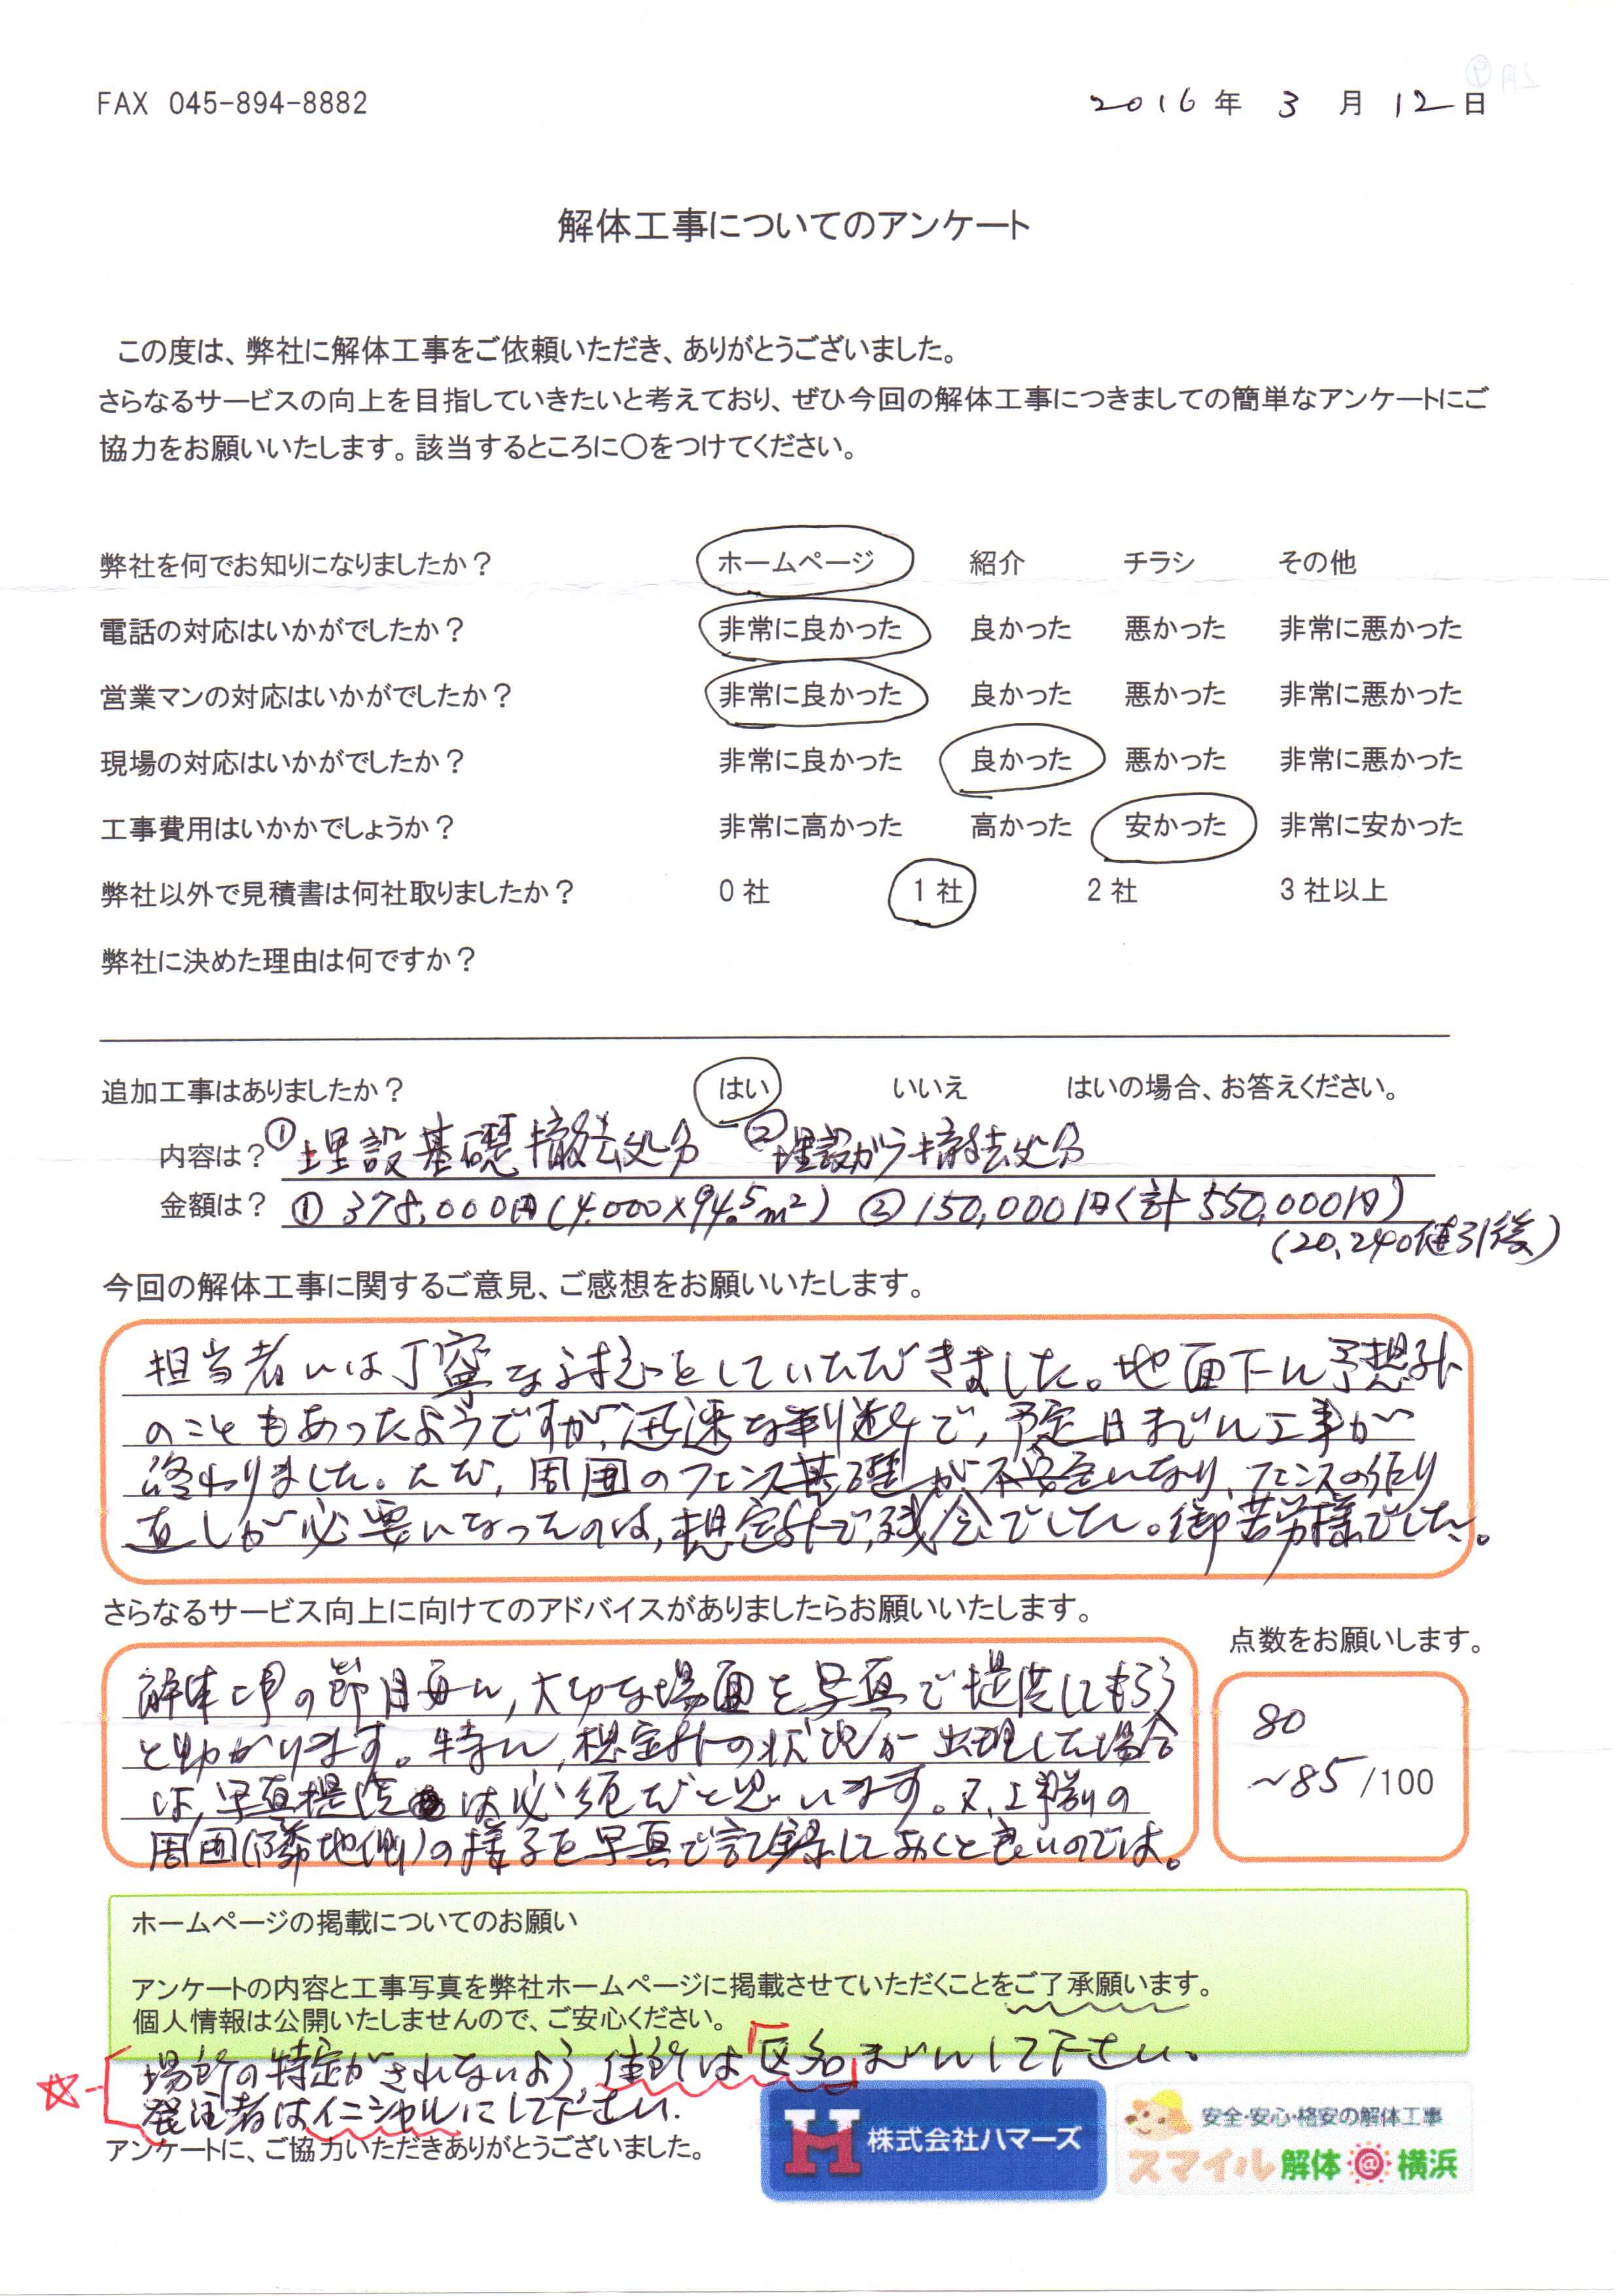 FAX 045-894-8882
2016年 3月 12日
解体工事についてのアンケート
この度は、弊社に解体工事をご依頼いただき、ありがとうございました。
さらなるサービスの向上を目指していきたいと考えており、ぜひ今回の解体工事につきましての簡単なアンケートにご
協力をお願いいたします。該当するところに〇をつけてください。
弊社を何でお知りになりましたか？ ホームページ 紹介 チラシ その他
電話の対応はいかがでしたか？ 非常に良かった 良かった 悪かった 非常に悪かった
営業マンの対応はいかがでしたか？ 非常に良かった 良かった 悪かった 非常に悪かった
現場の対応はいかがでしたか？ 非常に良かった 良かった 悪かった 非常に悪かった
工事費用はいかかでしょうか？ 非常に高かった 高かった 安かった 非常に安かった
弊社以外で見積書は何社取りましたか？ 0社 1社 2社 3社以上
弊社に決めた理由は何ですか？
追加工事はありましたか？ はい いいえ はいの場合、お答えください。
内容は？ ①埋設基礎撤去処分 ②埋設ガラ撤去処分
金額は？ ① 378,000円(4,000×94.5m²) ② 150,000円(計 550,000円)
(20,240値引後)
今回の解体工事に関するご意見、ご感想をお願いいたします。
担当者には丁寧な対応をしていただきました。地面下に予想外
のこともあったようですが、迅速な判断で、予定日までに工事が
終わりました。ただ、周囲のフェンス基礎が不安定になり、フェンスの作り
直しが必要になったのは、想定外で、残念でした。御苦労様でした。
さらなるサービス向上に向けてのアドバイスがありましたらお願いいたします。
点数をお願いします。
解体工事の節目毎に、大切な場面を写真で提供してもらう
と助かります。特に、想定外の状況が出現した場合
は、写真提供は必須だと思います。又、工事前の
周囲(隣地側)の様子を写真で記録しておくと良いのでは。
80
~85/100
ホームページの掲載についてのお願い
アンケートの内容と工事写真を弊社ホームページに掲載させていただくことをご了承願います。
個人情報は公開いたしませんので、ご安心ください。
場所の特定がされないよう、住所は「区名」までにして下さい。
発注者はイニシャルにして下さい。
アンケートに、ご協力いただきありがとうございました。
H 株式会社ハマーズ
安全・安心・格安の解体工事
スマイル解体@横浜